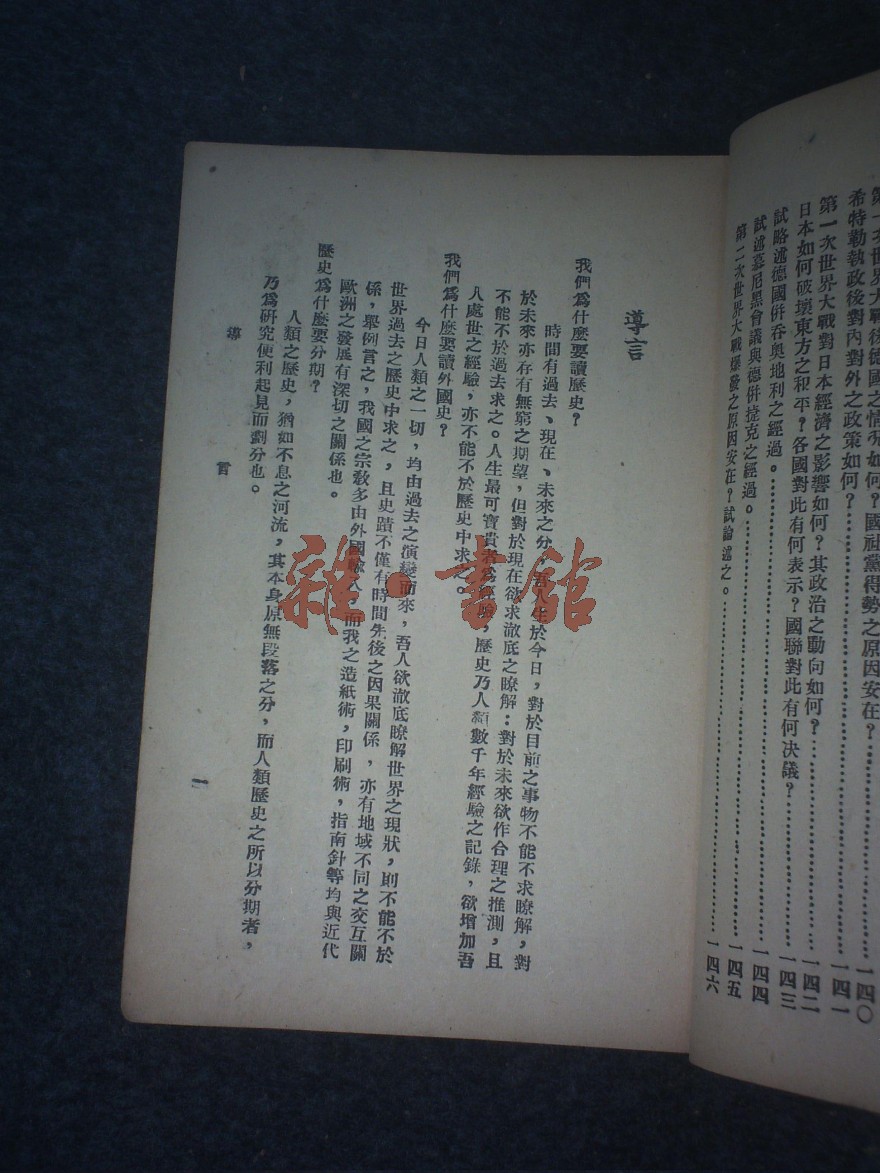 希特勒執政後對內對外之政策如何？……一四一
第一次世界大戰對日本經濟之影響如何？其政治之動向如何？……一四二
日本如何破壞東方之和平？各國對此有何表示？國聯對此有何決議？……一四三
試略述德國併吞奧地利之經過。……一四四
試述慕尼黑會議與德併捷克之經過。……一四五
第二次世界大戰爆發之原因安在？試論述之。……一四六
導言
我們爲什麼要讀歷史？
時間有過去、現在、未來之分，吾人生於今日，對於目前之事物不能不求瞭解，對
於未來亦存有無窮之期望，但對於現在欲求澈底之瞭解：對於未來欲作合理之推測，且
不能不於過去求之。人生最可寶貴者爲經驗，歷史乃人類數千年經驗之記錄，欲增加吾
人處世之經驗，亦不能不於歷史中求之。
我們爲什麼要讀外國史？
今日人類之一切，均由過去之演變而來，吾人欲澈底瞭解世界之現狀，則不能不於
世界過去之歷史中求之，且史蹟不僅有時間先後之因果關係，亦有地域不同之交互關
係，舉例言之，我國之宗教多由外國輸入，而我之造紙術，印刷術，指南針等均與近代
歐洲之發展有深切之關係也。
歷史爲什麼要分期？
人類之歷史，猶如不息之河流，其本身原無段落之分，而人類歷史之所以分期者，
乃爲研究便利起見而劃分也。
導言
一
雜·書館